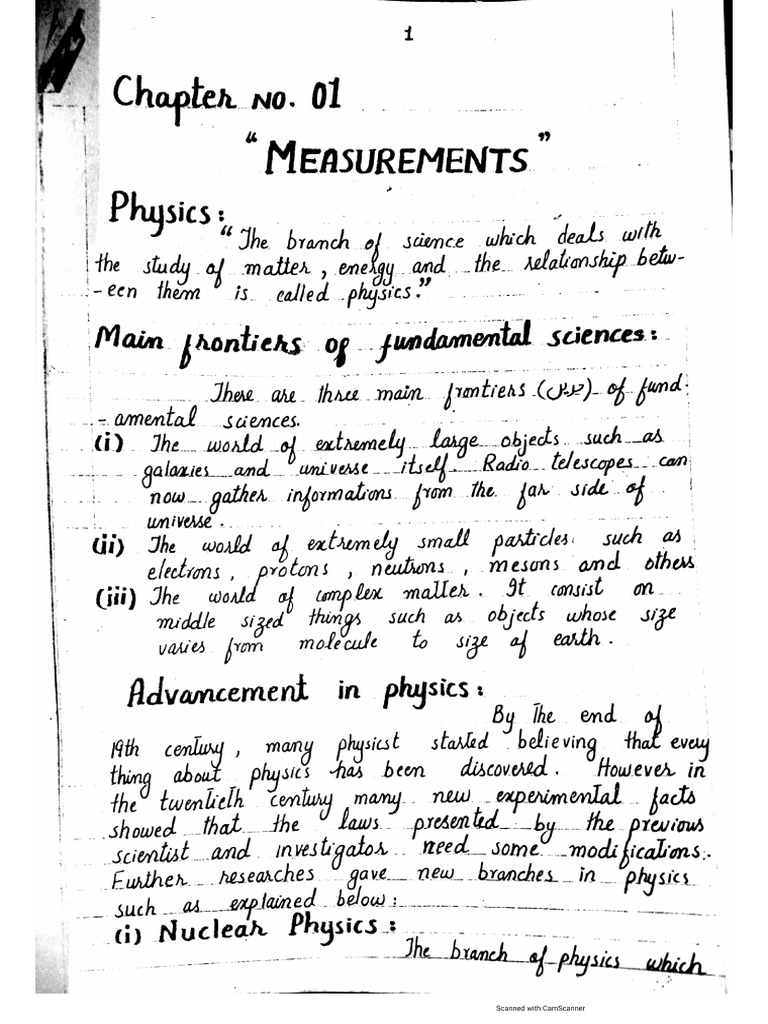 1
Chapter NO. 01
"MEASUREMENTS"
Physics:
"The branch of science which deals with
the study of matter, energy and the relationship betw-
-een them is called physics."
Main frontiers of fundamental sciences:
There are three main frontiers () of fund-
-amental sciences.
(i) The world of extremely large objects such as
galaxies and universe itself. Radio telescopes can
now gather informations from the far side of
universe.
(ii) The world of extremely small particles such as
electrons, protons, neutrons, mesons and others
(iii) The world of complex matter. It consist on
middle sized things such as objects whose size
varies from molecule to size of earth.
Advancement in physics:
By The end of
19th century, many physicst started believing that every
thing about physics has been discovered. However in
the twentieth century many new experimental facts
showed that the laws presented by the previous
scientist and investigator need some modifications.
Further researches gave new branches in physics
such as explained below:
(i) Nuclear Physics:
The branch of physics which
Scanned with CamScanner